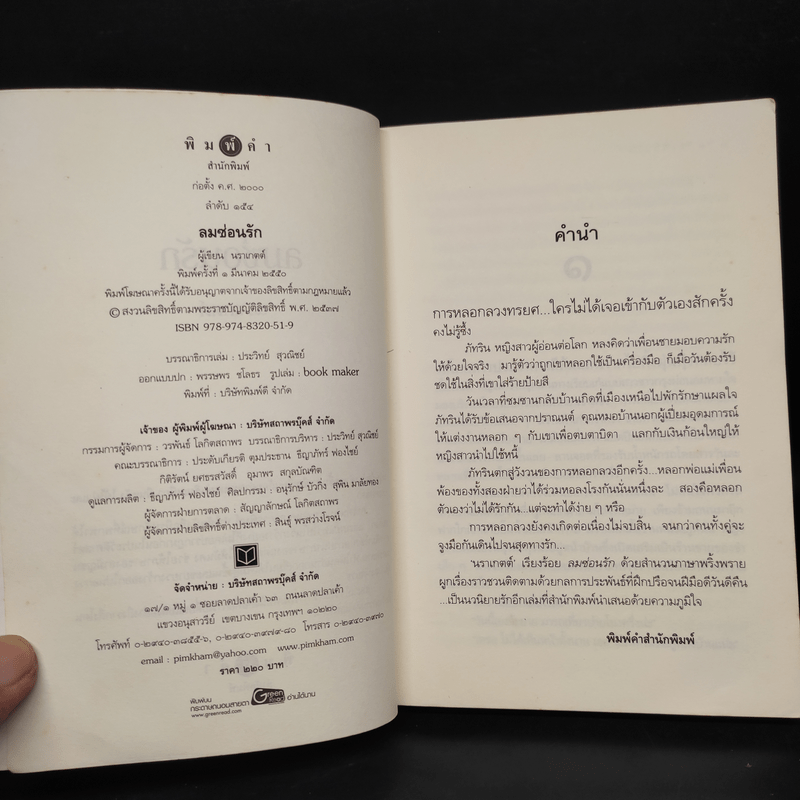 พิมพ์คำ
สำนักพิมพ์
ก่อตั้ง ค.ศ. ๒๐๐๐
ลำดับ ๑๕๔
ลมซ่อนรัก
ผู้เขียน นราเกตต์
พิมพ์ครั้งที่ ๑ มีนาคม ๒๕๕๐
พิมพ์โฆษณาครั้งนี้ได้รับอนุญาตจากเจ้าของลิขสิทธิ์ตามกฎหมายแล้ว
© สงวนลิขสิทธิ์ตามพระราชบัญญัติลิขสิทธิ์ พ.ศ. ๒๕๓๗
ISBN 978-974-8320-51-9
บรรณาธิการเล่ม : ประวิทย์ สุวณิชย์
ออกแบบปก : พรรษพร ชโลธร รูปเล่ม : book maker
พิมพ์ที่ : บริษัทพิมพ์ดี จำกัด
เจ้าของ ผู้พิมพ์ผู้โฆษณา : บริษัทสถาพรบุ๊คส์ จำกัด
กรรมการผู้จัดการ : วรพันธ์ โลกิตสถาพร บรรณาธิการบริหาร : ประวิทย์ สุวณิชย์
คณะบรรณาธิการ : ประดับเกียรติ ตุมประธาน ธีญาภัทร์ ฟองไชย์
กิติรัตน์ ยศธรสวัสดิ์ อุมาพร สกุลบัณฑิต
ดูแลการผลิต : ธีญาภัทร์ ฟองไชย์ ศิลปกรรม : อนุรักษ์ บัวกิ่ง สุพิน มาลัยทอง
ผู้จัดการฝ่ายการตลาด : สัญญาลักษณ์ โลกิตสถาพร
ผู้จัดการฝ่ายลิขสิทธิ์ต่างประเทศ : สินธุ์ พรสว่างโรจน์
จัดจำหน่าย : บริษัทสถาพรบุ๊คส์ จำกัด
๑๗/๑ หมู่ ๑ ซอยลาดปลาเค้า ๖๓ ถนนลาดปลาเค้า
แขวงอนุสาวรีย์ เขตบางเขน กรุงเทพฯ ๑๐๒๒๐
โทรศัพท์ ๐-๒๙๔๐-๓๘๕๕-๖, ๐-๒๙๔๐-๓๙๗๙-๘๐ โทรสาร ๐-๒๙๔๐-๓๙๗๐
email : pimkham@yahoo.com www.pimkham.com
ราคา ๒๒๐ บาท
พิมพ์บน
กระดาษถนอมสายตา Green Read อ่านได้นาน
www.greenread.com
คำนำ
การหลอกลวงทรยศ...ใครไม่ได้เจอเข้ากับตัวเองสักครั้ง
คงไม่รู้ซึ้ง
ภัทริน หญิงสาวผู้อ่อนต่อโลก หลงคิดว่าเพื่อนชายมอบความรัก
ให้ด้วยใจจริง มารู้ตัวว่าถูกเขาหลอกใช้เป็นเครื่องมือ ก็เมื่อวันต้องรับ
ชดใช้ในสิ่งที่เขาใส่ร้ายป้ายสี
วันเวลาที่ซมซานกลับบ้านเกิดที่เมืองเหนือไปพักรักษาแผลใจ
ภัทรินได้รับข้อเสนอจากปราณนต์ คุณหมอบ้านนอกผู้เปี่ยมอุดมการณ์
ให้แต่งงานหลอก ๆ กับเขาเพื่อตบตาบิดา แลกกับเงินก้อนใหญ่ให้
หญิงสาวนำไปใช้หนี้
ภัทรินตกสู่วังวนของการหลอกลวงอีกครั้ง...หลอกพ่อแม่เพื่อน
พ้องของทั้งสองฝ่ายว่าได้ร่วมหอลงโรงกันนั่นหนึ่งละ สองคือหลอก
ตัวเองว่าไม่ได้รักกัน...แต่จะทำได้ง่าย ๆ หรือ
การหลอกลวงยังคงเกิดต่อเนื่องไม่จบสิ้น จนกว่าคนทั้งคู่จะ
จูงมือกันเดินไปจนสุดทางรัก...
'นราเกตต์' เรียงร้อย ลมซ่อนรัก ด้วยสำนวนภาษาพริ้งพราย
ผูกเรื่องราวชวนติดตามด้วยกลการประพันธ์ที่ฝึกปรือจนฝีมือดีวันดีคืน
...เป็นนวนิยายรักอีกเล่มที่สำนักพิมพ์นำเสนอด้วยความภูมิใจ
พิมพ์คำสำนักพิมพ์